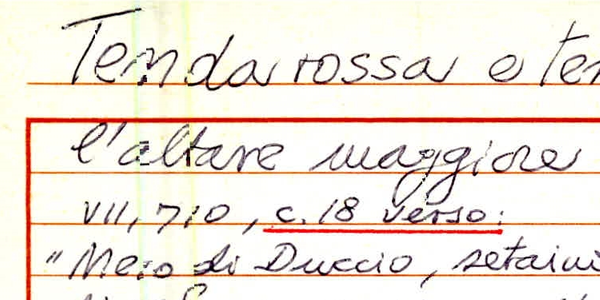 Tenda rossa e ten
l'altare maggiore
VII, 710, c. 18 verso:
"Meio di Duccio, setaiu